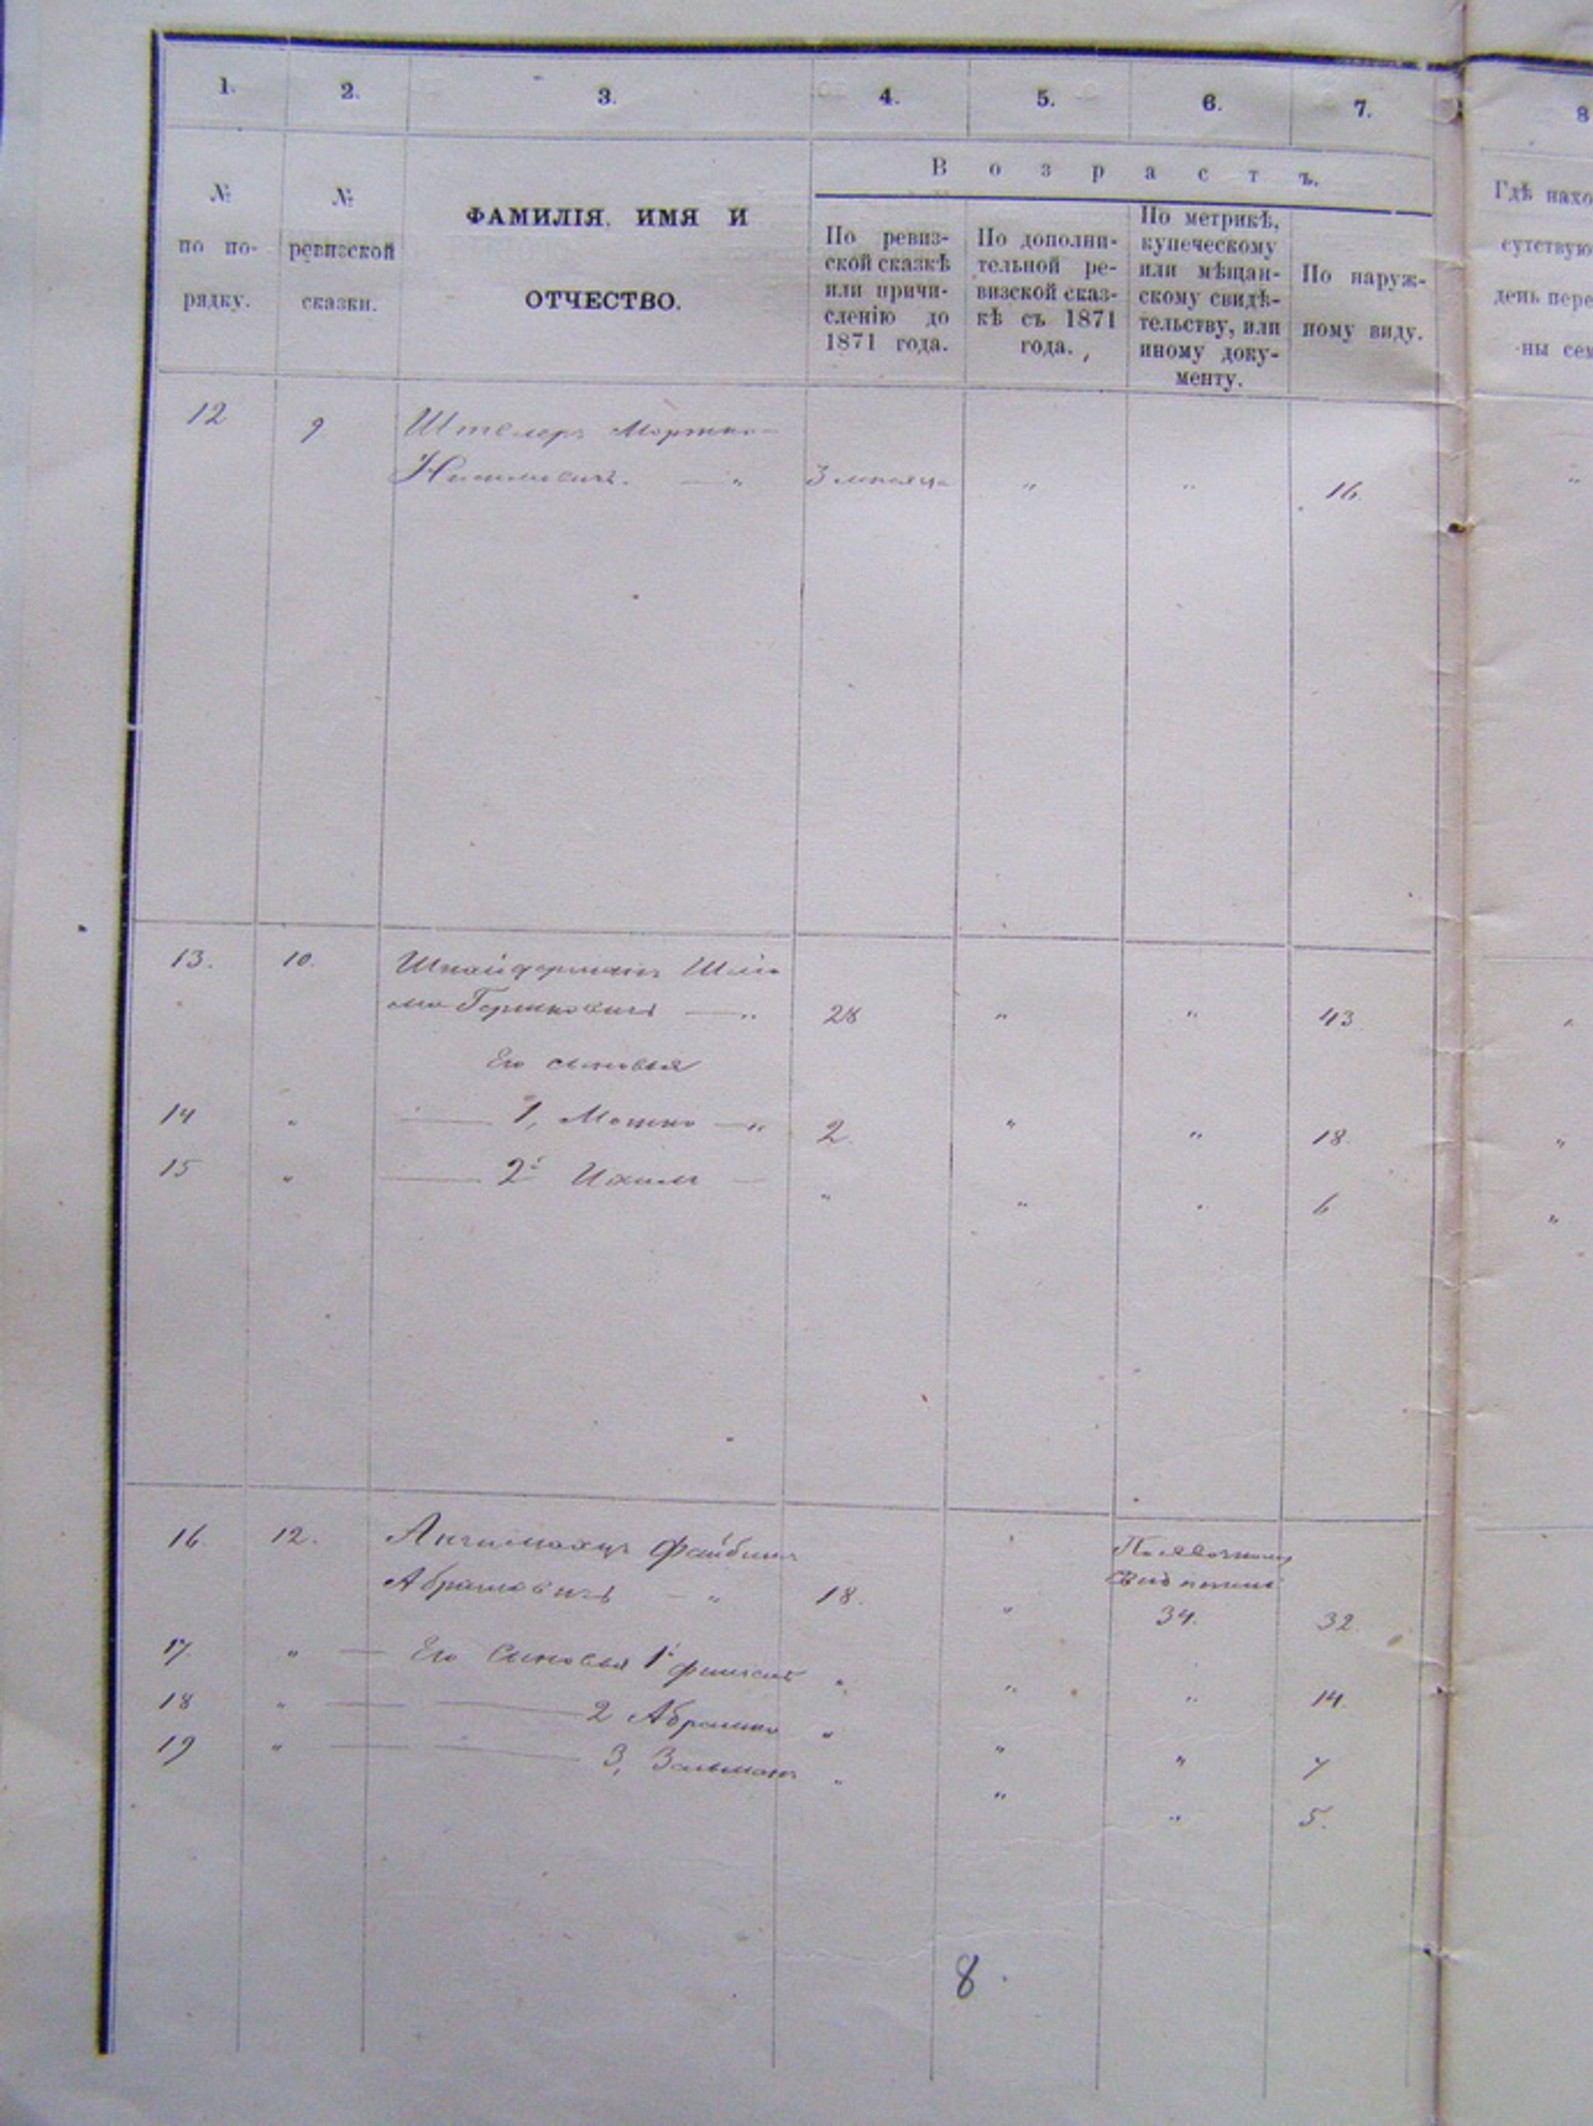 1. 2. 3. 4. 5. 6. 7. 8
№ по по-рядку.
№ ревизской сказки.
ФАМИЛІЯ, ИМЯ И
ОТЧЕСТВО.
В о з р а с т ъ.
По ревиз-
ской сказкѣ
или причи-
сленію до
1871 года.
По дополни-
тельной ре-
визской сказ-
кѣ съ 1871
года.
По метрикѣ,
купеческому
или мѣщан-
скому свидѣ-
тельству, или
иному доку-
менту.
По наруж-
ному виду.
Гдѣ нахо
сутствую
день пере
ны сем
12 9 Штелеръ Мортко-
3 мѣсяца " " 16.
13. 10. Шнайдерманъ Шлио
ма Гершковичъ — " 28 " " 43
Его сыновья
14 " — 1, Мошко — " 2. " " 18.
15 " — 2й — " " " 6
16. 12. Файбишъ По явочному
Абрамовичъ — " 18. " свид 34. 32.
17. " — Его сыновья 1й " " " 14.
18 " — 2 Абрамко " " " 7
19 " — 3, Зальманъ " " " 5.
8.